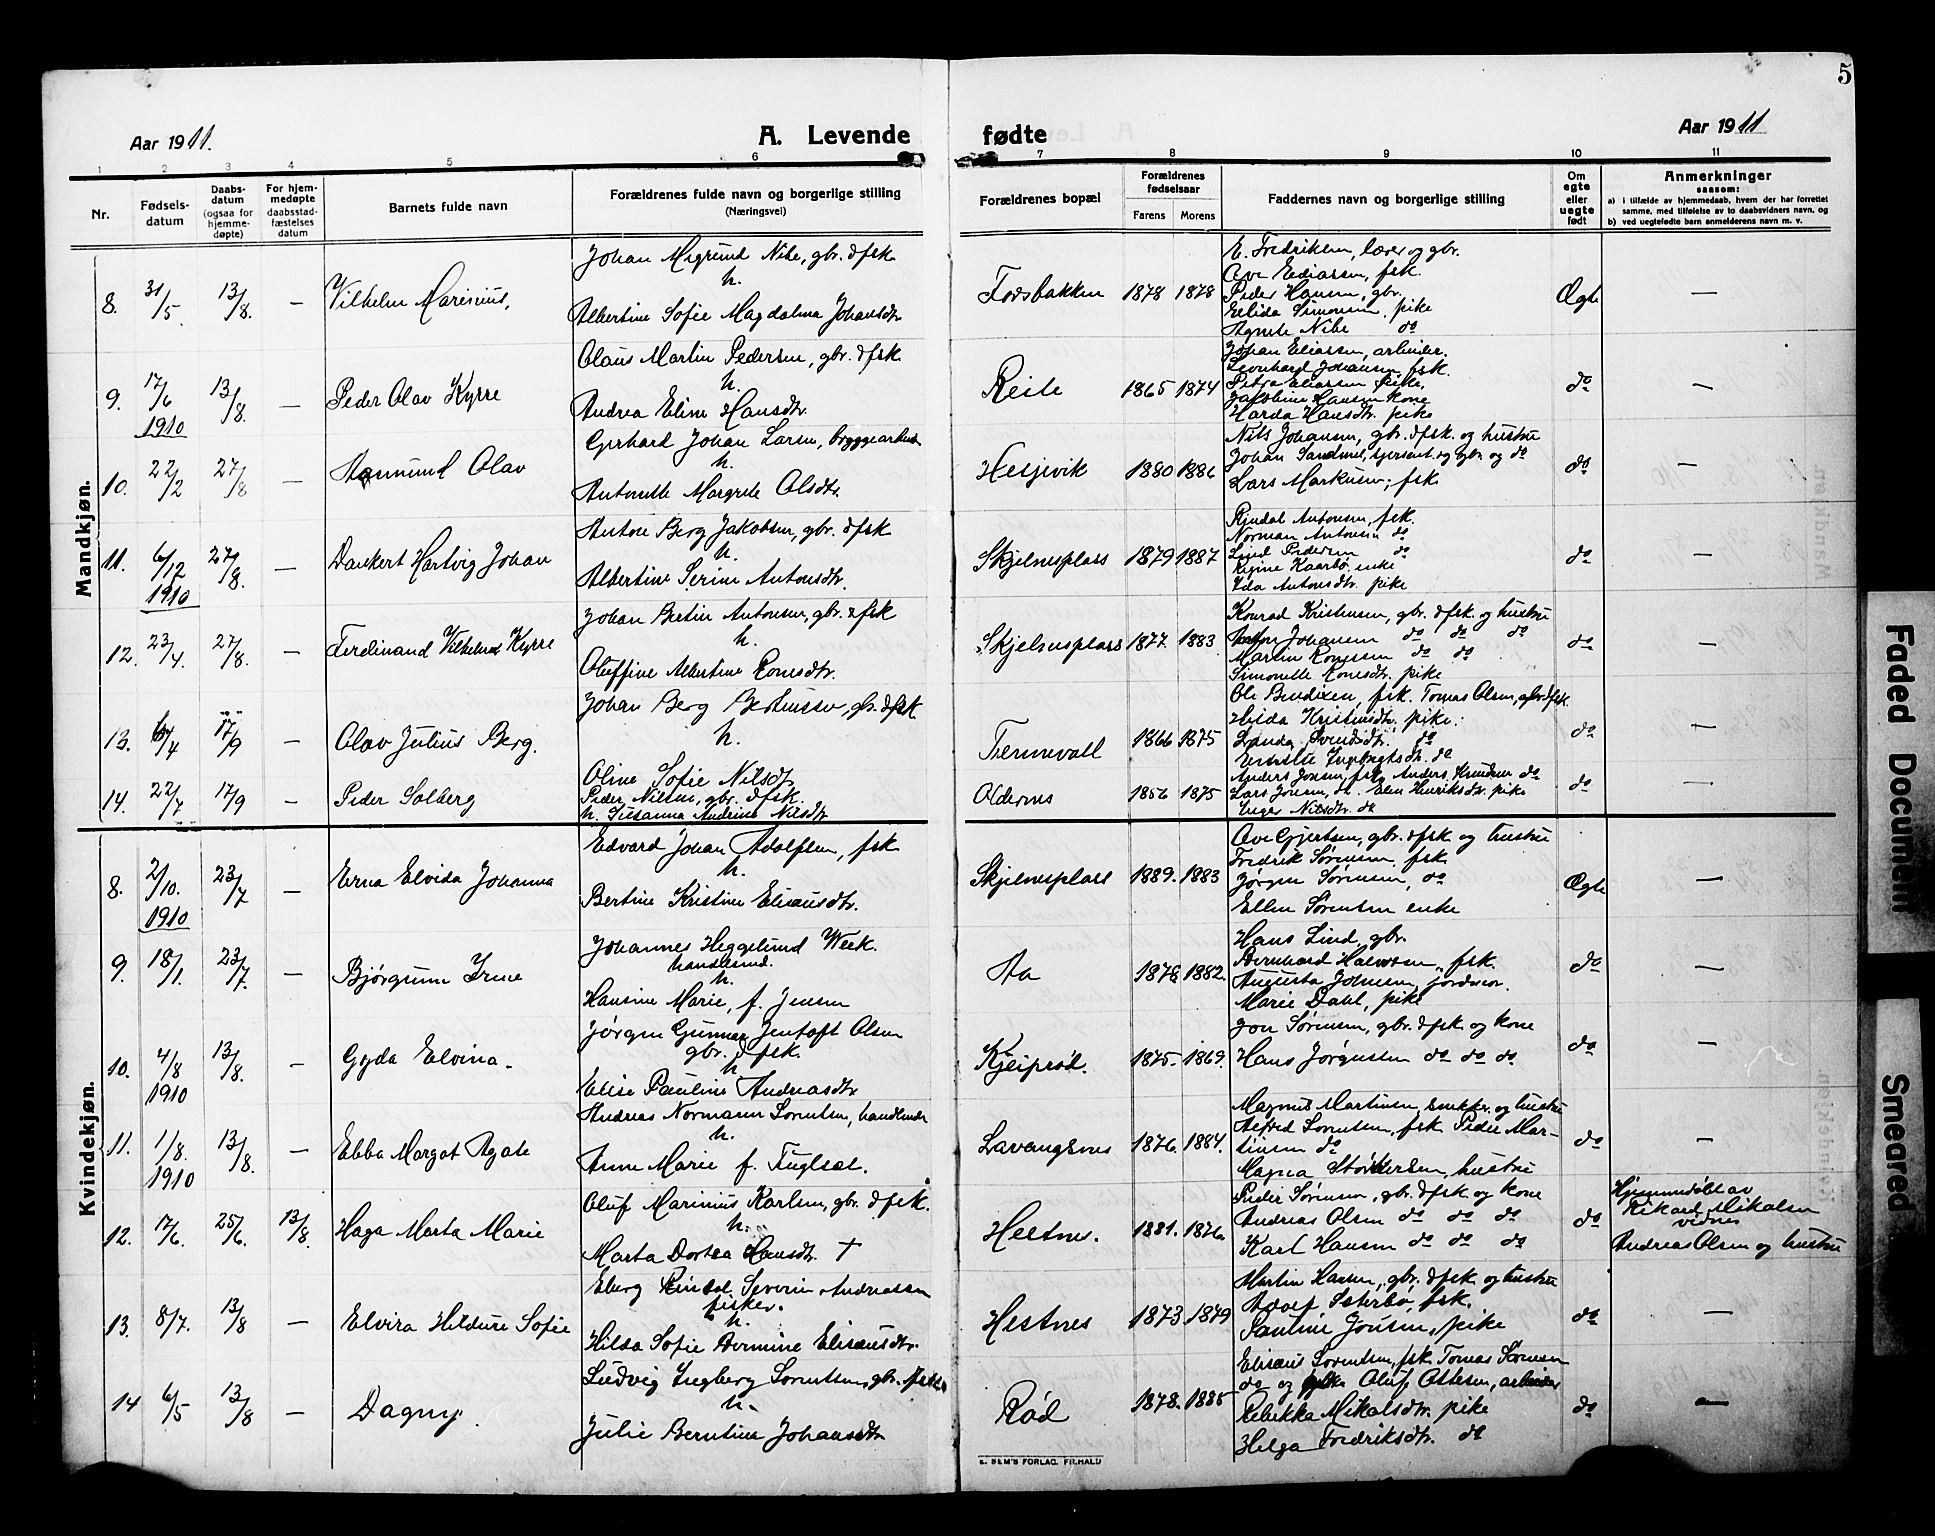 5
Aar 1911.
A. Levende fødte
Aar 1911
1 2 3 4 5 6 7 8 9 10 11
Nr.
Fødsels-
datum
Daabs-
datum
(ogsaa for
hjemme-
døpte)
For hjem-
medøpte
daabsstad-
fæstelses
datum
Barnets fulde navn
Forældrenes fulde navn og borgerlige stilling
(Næringsvei)
Forældrenes bopæl
Forældrenes
fødselsaar
Farens Morens
Faddernes navn og borgerlige stilling
Om
egte
eller
uegte
født
Anmerkninger
saasom:
a) i tilfælde av hjemmedaab, hvem der har forrettet
samme, med tilføielse av to daabsvidners navn, og
b) ved uegtefødte barn anmelderens navn m. v.
Mandkjøn.
8. 31/5. 13/8. — Vilhelm Marinius,
Johan Nibe, gbr. & fsk
h.
Albertine Sofie Magdalena Johansdtr
Fossbakken 1878 1878
E. Fredriksen, lærer og gbr.
Ove Ediassen, fsk.
Peder Hansen, gbr.
Elida Simonsen, pike
Agnete Nibe do
Ægte —
9. 17/6 13/8. — Peder Olav Kyrre
1910
Olaus Martin Pedersen, gbr. & fsk
h.
Andrea Eline Hansdtr.
Reile 1865 1874
Johan Eliassen, arbeider.
Leonhard Johansen, fsk.
Petra Eliassen pike,
Jakobine Hansen kone
Harda Hansdtr. pike
do —
10. 22/2 27/8 — Asmund Olav
Gerhard Johan Larsen, bryggearbeid
h.
Antonette Margrete Olsdtr.
Hesjevik 1880 1886
Nils Johansen, gbr. & fsk. og hustru
Johan Sandnes, sersant og gbr. og do
Lars Markusen, fsk
do —
11. 6/12 27/8. — Dankert Hartvig Johan
1910
Anton Berg Jakobsen, gbr. & fsk
h.
Albertine Serine Antonsdtr.
Skjelnesplass 1879 1887
Rindal Antonsen, fsk.
Norman Antonsen do
Lind Pedersen do
Regine Kaarbø enke
Ida Antonsdtr. pike
do —
12. 23/4. 27/8. — Ferdinand Vilhelm Kyrre
Johan Bertin Antonsen, gbr. & fsk
h.
Oluffine Albertine Ronesdtr.
Skjelnesplass 1877. 1883
Konrad Kristensen, gbr. & fsk. og hustru
Anton Johansen do do do
Martin Ronessen do do
Simonette Ronesdtr. pike
do —
13. 6/4 17/9 — Olav Julius Berg.
Johan Berg Berteussen, gbr. & fsk
h.
Oline Sofie Nilsdtr
Tennevoll 1866 1875
Ole Bendixen, fsk. Tomas Olsen, gbr. & fsk.
Hilda Kristensdtr. pike.
Landa Svendsdtr. do
Ingebrigtsdtr. do
do —
14. 22/7 17/9 — Peder Solberg
Peder Nilsen, gbr. & fsk.
h. Susanna Andrine Nilsdtr
Oldernes 1856 1875
Anders Jensen, fsk, Anders Knudsen do
Lars Jensen, do. Elen Henriksdtr. pike
Inger Nilsdtr. do
do —
Kvindekjøn.
8. 2/10. 23/7 — Erna Elvida Johanna
1910
Edvard Johan Adolfsen, fsk
h.
Bertine Kristine Eliseusdtr.
Skjelnesplass 1889. 1883
Ove Gjertsen, gbr. & fsk og hustru
Fredrik Sørensen fsk.
Jørgen Sørensen, do
Ellen Sørensen enke
Ægte —
9. 18/1. 23/7. — Bjørgunn Irene
Johannes Heggelund Week.
handelsmd.
h.
Hansine Marie, f. Jensen
Aa 1878 1882.
Hans Lind, gbr.
Bernhard Halvorsen, fsk.
Augusta Johnsen, jordmor.
Marie Dahl, pike
do —
10. 4/8 13/8. — Gyda Elvina.
1910
Jørgen Gunnar Jentoft Olsen
gbr. & fsk.
h.
Elise Pauline Andreasdtr
Kjeiprød. 1875. 1869.
Jon Sørensen, gbr. & fsk og kone
Hans Jørgensen do do do
do —
11. 1/8. 13/8. — Ebba Margot Agate
1910
Andreas Normann Sørensen, handlende
h.
Anne Marie f. Fuglset.
Lavangsnes 1876. 1884.
Magnus Martinsen, snekker og hustru
Alfred Sørensen, fsk Peder Mar-
tinsen do
Magna hustru
do —
12. 17/6. 25/6. 13/8. Haga Marta Marie
Oluf Marinius Karlsen, gbr. & fsk.
h.
Marta Dortea Hansdtr. †
Hestnes. 1881. 1876.
Peder Sørensen, gbr. & fsk og kone
Andreas Olsen do do do
Karl Hansen do do do
do
Hjemmedøbt av
Rikard Mikalsen
vidnes
Andreas Olsen og hustru
13. 8/7. 13/8 — Elvira Hildure Sofie
Eberg Rindal Severin Andreassen
fisker.
h.
Hilda Sofie Dermine Eliseusdtr.
Hestnes 1873 1879
Martin Hansen, gbr. & fsk. og hustru
Adolf Sæterbø, fsk.
Pauline Jensen, pike
do —
14 6/5 13/8 — Dagny.
Ludvig Ingberg Sørensen, gbr. fsk.
h.
Julie Berntine Johansdtr
Rød 1878. 1885
Eliseus Sørensen, fsk. Tomas Sørensen
do og Oluf Ottesen, arbeider
Rebekka Mikalsdtr. pike
Helga Fredriksdtr. do
do —
E. SEM'S FORLAG, FR.HALD
Faded Document
Smeared